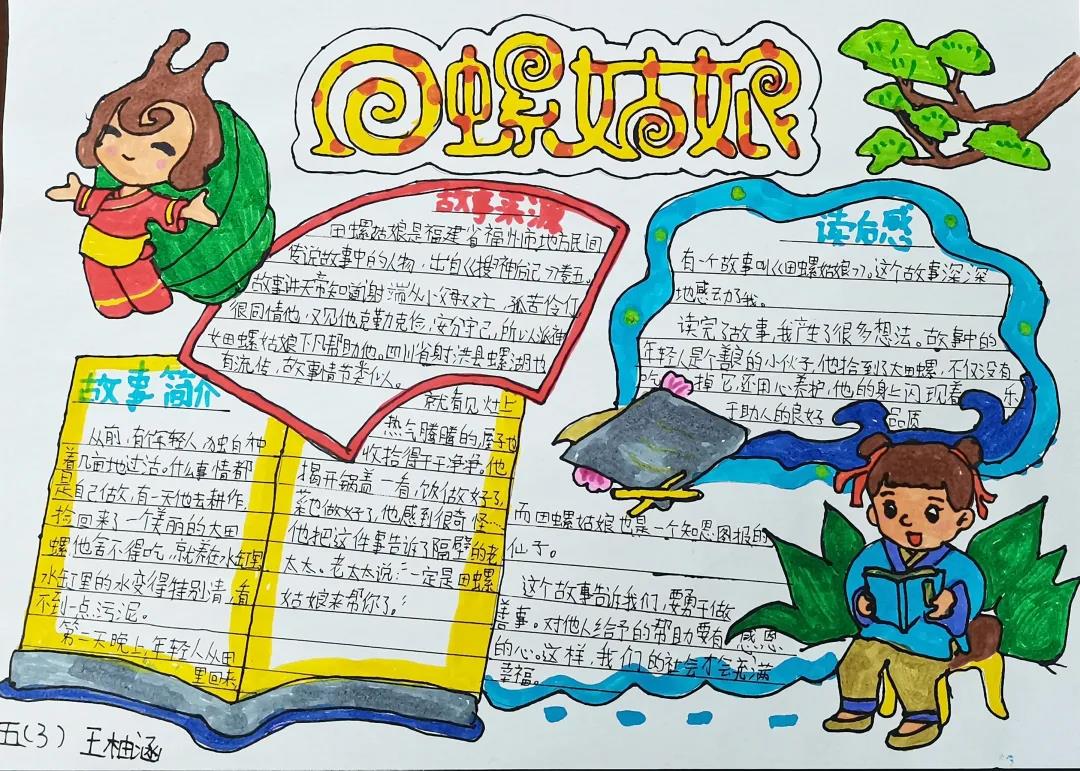 田螺姑娘
故事来源
田螺姑娘是福建省福州市地方民间
传说故事中的人物，出自《搜神后记》卷五。
故事讲天帝知道谢端从小父母双亡，孤苦伶仃
很同情他，又见他克勤克俭、安分守己，所以派神
女田螺姑娘下凡帮助他。四川省射洪县螺湖也
有流传，故事情节类似人。
读后感
有一个故事叫《田螺姑娘》，这个故事深深
地感动了我。
读完了故事，我产生了很多想法。故事中的
年轻人是个善良的小伙子，他拾到了大田螺，不仅没有
吃掉它，还用心养护，他的身上闪现着乐
于助人的良好品质
而田螺姑娘也是一个知恩图报的
仙子。
这个故事告诉我们，要勇于做
善事。对他人给予的帮助要有感恩
的心。这样，我们的社会才会充满
幸福。
故事简介
从前，有年轻人独自种
着几亩地过活。什么事情都
是自己做，有一天他去耕作，
捡回来了一个美丽的大田
螺他舍不得吃，就养在水缸里
水缸里的水变得特别清，看
不到一点污泥。
第一天晚上，年轻人从田
里回来
就看见灶上
热气腾腾的，屋子也
收拾得干干净净。他
揭开锅盖一看，饭做好了，
菜也做好了，他感到很奇怪…
他把这件事告诉了隔壁的老
太太。老太太说：一定是田螺
姑娘来帮你了。
五(3) 王柚涵